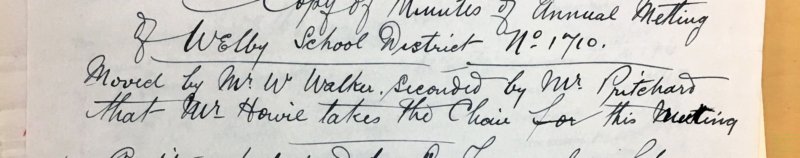 Copy of Minutes of Annual Meeting
of Welby School District No 1710.
Moved by Mr W Walker. seconded by Mr Pritchard
that Mr Howie takes the Chair for this Meeting